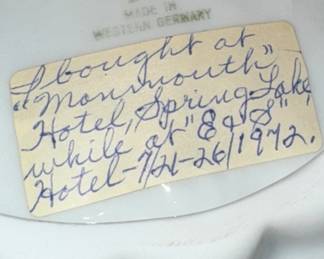 MADE IN
WESTERN GERMANY
I bought at
"Monmouth"
Hotel, Spring Lake,
while at "E & S"
Hotel - 7/21-26/1972.